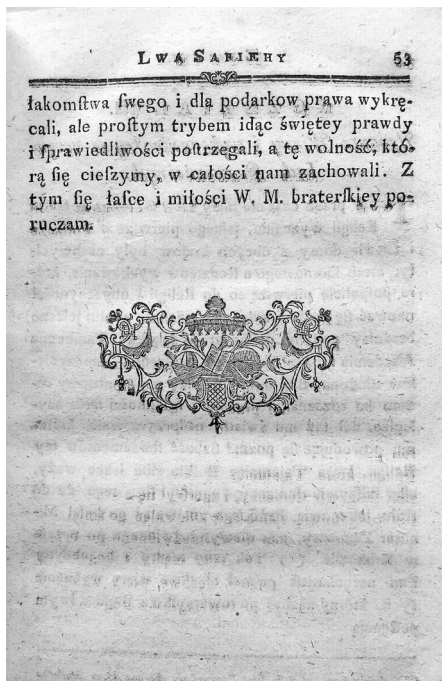 LWA SAPIEHY 53
łakomſtwa ſwego i dla podarkow prawa wykrę-
cali, ale proſtym trybem idąc świętey prawdy
i ſprawiedliwości poſtrzegali, a tę wolność, któ-
rą ſię cieſzymy, w całości nam zachowali. Z
tym ſię łaſce i miłości W. M. braterſkiey po-
ruczam.